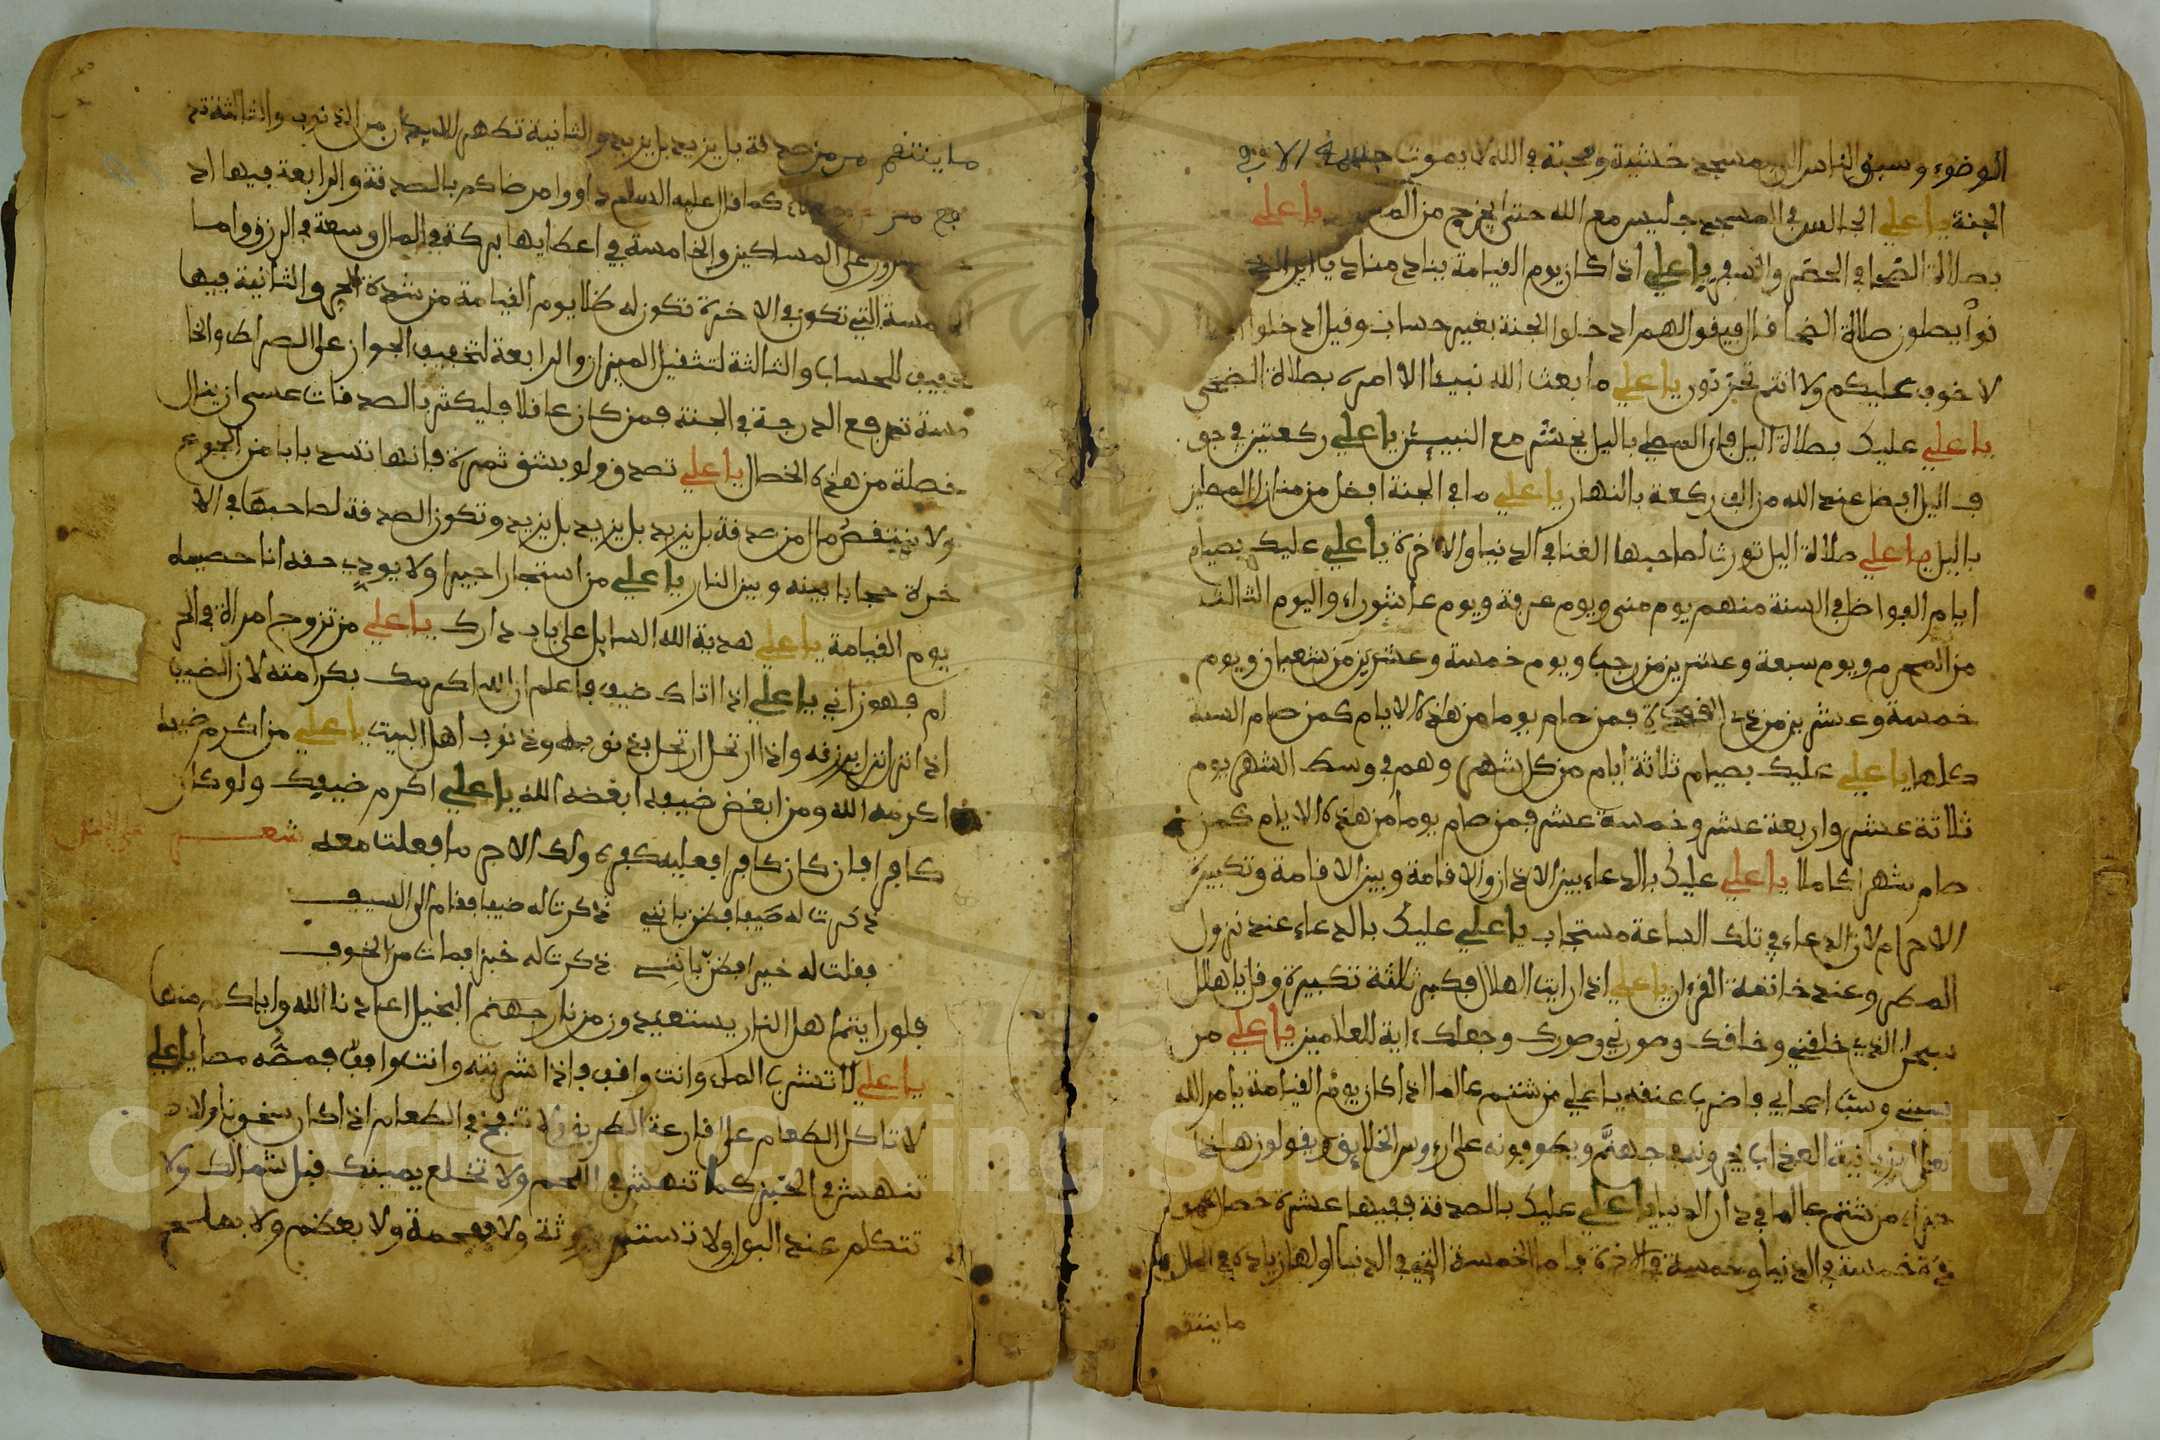 الوضوء وسبق الناس الى المسجد خشية ومحبة في الله لا يموت حتى في
الجنة يا علي الجالس في المسجد جليس مع الله حتى يخرج من المسجد يا علي
بصلاة الضحا في الحضر والسفر يا علي اذا كان يوم القيامة يناد مناد يا اين الذين
كانوا يصلون صلاة الضحا قال فيقول لهم ادخلوا الجنة بغير حساب وقيل ادخلوا
لا خوف عليكم ولا انتم تحزنون يا علي ما بعث الله نبيئا الا امره بصلاة الضحى
يا علي عليك بصلاة اليل فان المصلي باليل يحشر مع النبيئين يا علي ركعتين في جو
ف اليل افضل عند الله من الف ركعة بالنهار يا علي ما في الجنة افضل من منازل المصلين
باليل يا علي صلاة اليل تورث لصاحبها الغنا في الدنيا والاخرة يا علي عليك بصيام
ايام الفواضل في السنة منهم يوم منى ويوم عرفة ويوم عاشوراء واليوم الثالث
من المحرم ويوم سبعة وعشرين من رجب ويوم خمسة وعشرين من شعبان ويوم
خمسة وعشرين من ذي القعدة فمن صام يوما من هذه الايام كمن صام السنة
كلها يا علي عليك بصيام ثلاثة ايام من كل شهر وهم في وسط الشهر يوم
ثلاثة عشر واربعة عشر وخمسة عشر فمن صام يوما من هذه الايام كمن
صام شهرا كاملا يا علي عليك بالدعاء بين الاذان والاقامة وبين الاقامة وتكبيرة
الاحرام لان الدعاء في تلك الساعة مستجاب يا علي عليك بالدعاء عند نزول
المطر وعند خاتمة القرءان يا علي اذا رايت الهلال فكبر ثلثة تكبيرة وقل يا هلال
سبحان الذي خلقني وخلقك وصورني وصورك وجعلك ءاية للعالمين يا علي من
سبني وسب اصحابي فاضرب عنقه يا علي من شتم عالما اذا كان يوم القيامة يامر الله
تعلى الزبانية العذاب يجرونه في جهنم ويطوفونه على رءوس الخلايق ويقولون هذا
جزاء من شتم عالما في دار الدنيا يا علي عليك بالصدقة ففيها عشرة خصال
خمسة في الدنيا وخمسة في الاخرة فاما الخمسة التي في الدنيا اولها زيادة في المال
ما ينتقص
ما ينتقص من صدقة بل يزيد بل يزيد والثانية تطهر الابدان من الذنوب والثالثة تد
كما قال عليه السلام داووا مرضاكم بالصدقة والرابعة فيها اد
سرور على المساكين والخامسة في اعطايها بركة في المال وسعة في الرزق واما
الخمسة التي تكون في الاخرة تكون له ظلا يوم القيامة من شدة الحر والثانية فيها
تخفيف للحساب والثالثة لتثقيل الميزان والرابعة لتخفيف الجواز على الصراط والخا
مسة ترفع الدرجة في الجنة فمن كان عاقلا فليكثر بالصدقات عسى ان ينال
خصلة من هذه الخصال يا علي تصدق ولو بشق ثمرة فانها تسد بابا من الجوع
ولا ينتقص مال من صدقة بل يزيد بل يزيد بل يزيد وتكون الصدقة لصاحبها في الا
خرة حجابا بينه وبين النار يا علي من استجار اجيرا ولا يودي حقه انا خصيمه
يوم القيامة يا علي هدية الله السايل على باب دارك يا علي من تزوج امراة في الحر
ام فهو زاني يا علي اذا اتاك ضيف فاعلم ان الله اكرمك بكرامته لان الضيف
اذا نزل نزل برزقه واذا ارتحل ارتحل بذنوبه وذنوب اهل البيت يا علي من اكرم ضيفه
اكرمه الله ومن ابغض ضيفه ابغضه الله يا علي اكرم ضيفك ولو كان
كافرا فان كان كافرا فعليه كفره ولك الاجر ما فعلت معه شعر
ذكرت له ضيفا فظن بانني ذكرت له ضيفا فقام الى السيف
فقلت له خيرا فظن بانني ذكرت له خبزا فمات من الخوف
فلو رايتم اهل النار يستعيذون من نار جهنم البخيل اعاذنا الله واياكم منها
يا علي لا تشرب الماء وانت واقف فاذا شربته وانت واقف فمصه مصا يا علي
لا تاكل الطعام على قارعة الطريق ولا تنفخ في الطعام اذا كان سخونا ولا
تنهش في الخبز كما تنهش في اللحم ولا تخلع يمينك قبل شمالك ولا
تتكلم عند البول ولا تستنج ولا بفحمة ولا بعظم ولا